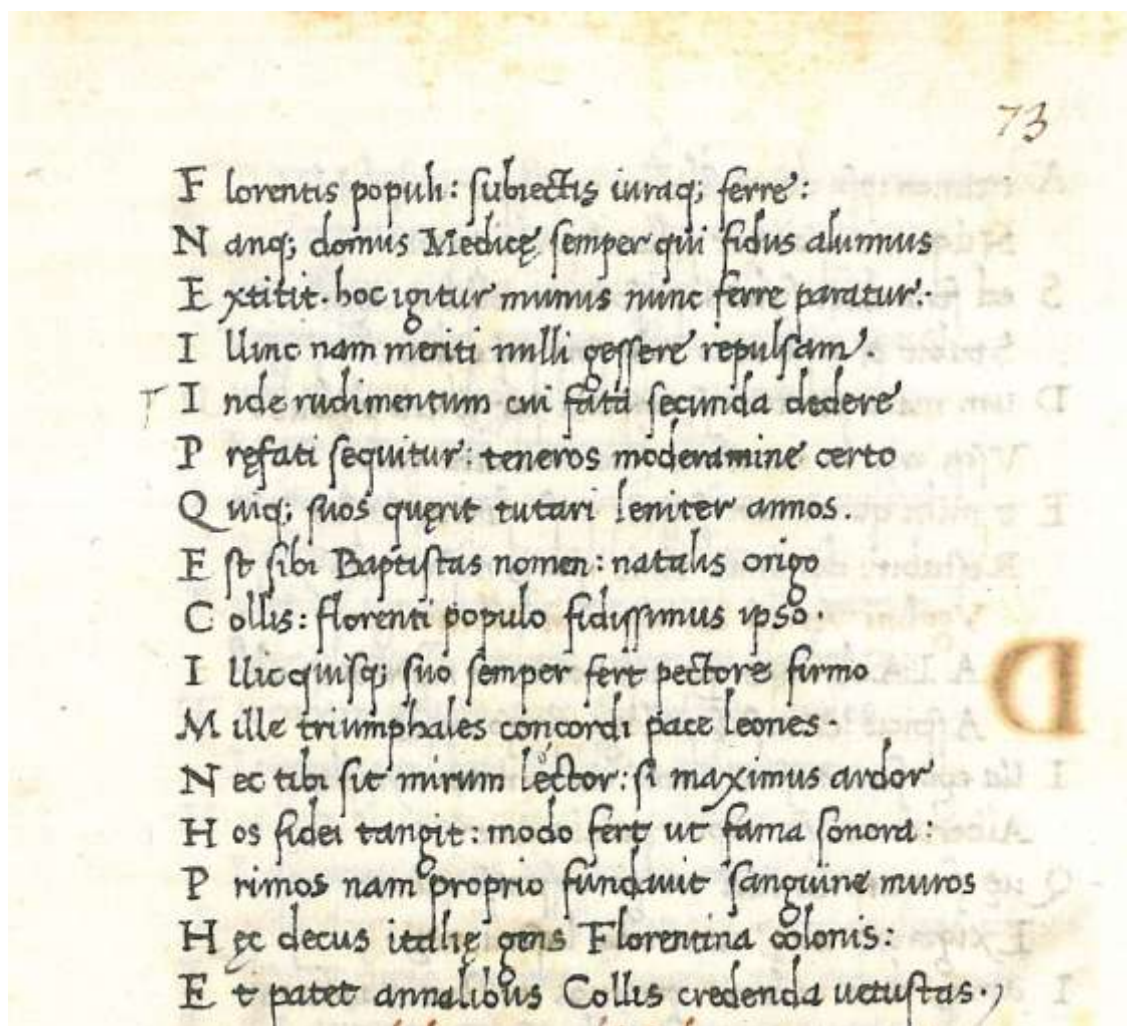 73
Florentis populi: subiectis iuraq; ferre:
Nanq; domus Medicę semper qui fidus alumnus
Extitit. hoc igitur munus nunc ferre paratur:.
Illinc nam meriti nulli gessere repulsam.
Inde rudimentum cui fata secunda dedere
Pręfati sequitur: teneros moderamine certo
Quiq; suos quęrit tutari leniter annos.
Est sibi Baptistas nomen: natalis origo
Collis: florenti populo fidissimus ipso.
Illic quisq; suo semper fert pectore firmo
Mille triumphales concordi pace leones.
Nec tibi sit mirum lector: si maximus ardor
Hos fidei tangit: modo fert ut fama sonora:
Primos nam proprio fundauit sanguine muros
Hęc decus italię gens Florentina colonis:
Et patet annalibus Collis credenda uetustas.